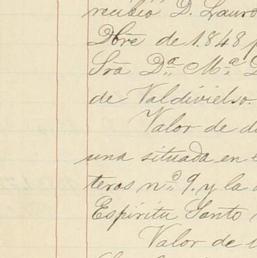 recibió D. Lauro
Dbre de 1848 p
Sra Dª Mª D
de Valdivielso.
Valor de d
una situada en e
teros nº 9. y la
Espíritu Santo
Valor de